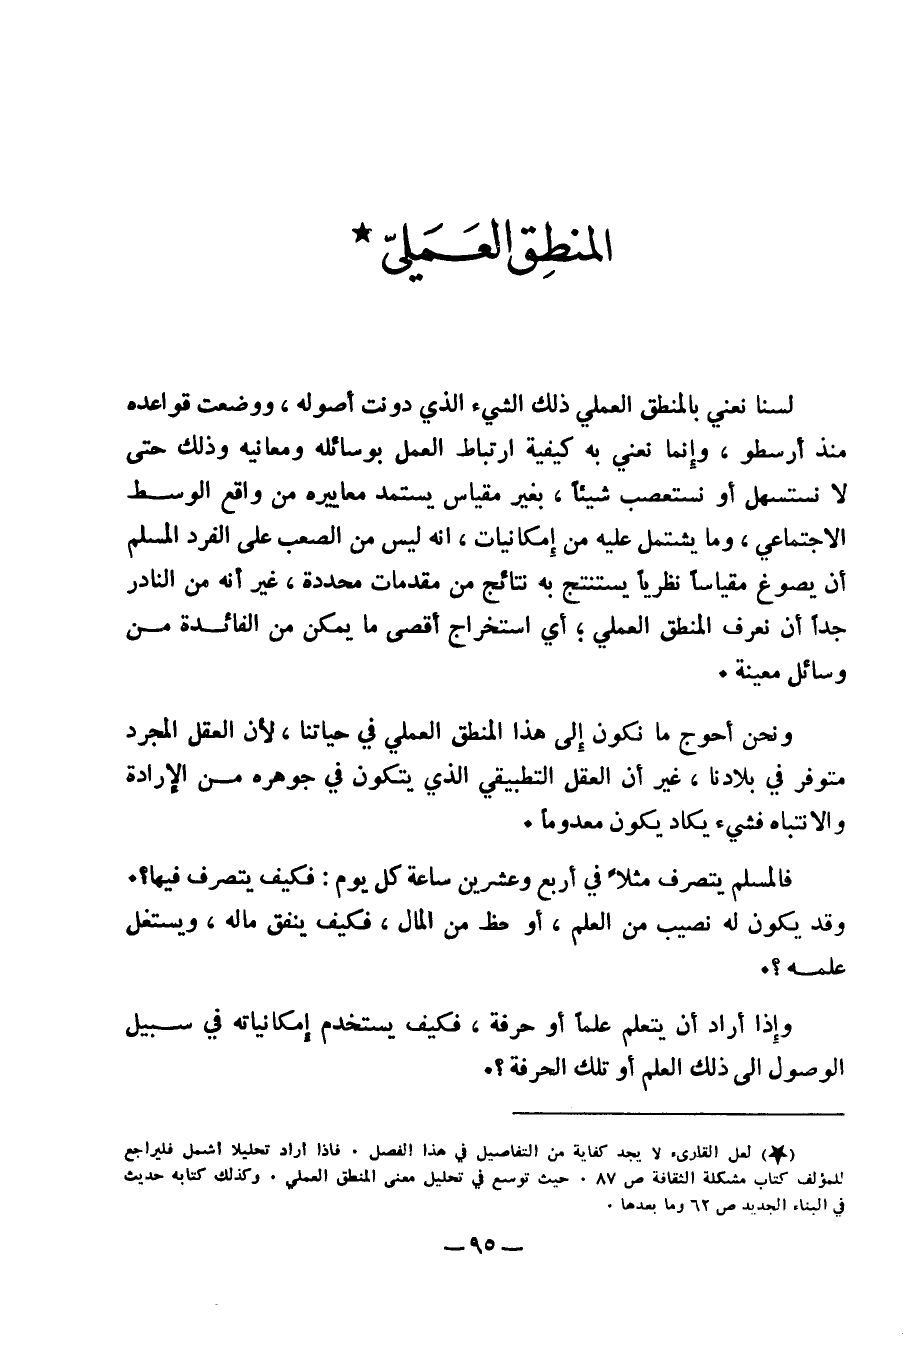 المنطِق العَـمَـليّ ★
لسنا نعني بالمنطق العملي ذلك الشيء الذي دونت أصوله ، ووضعت قواعده
منذ أرسطو ، وإنما نعني به كيفية ارتباط العمل بوسائله ومعانيه وذلك حتى
لا نستسهل أو نستعصب شيئاً ، بغير مقياس يستمد معاييره من واقع الوسـط
الاجتماعي ، وما يشتمل عليه من إمكانيات ، انه ليس من الصعب على الفرد المسلم
أن يصوغ مقياساً نظرياً يستنتج به نتائج من مقدمات محددة ، غير أنه من النادر
جداً أن نعرف المنطق العملي ؛ أي استخراج أقصى ما يمكن من الفائـدة مـن
وسائل معينة .
ونحن أحوج ما نكون إلى هذا المنطق العملي في حياتنا ، لأن العقل المجرد
متوفر في بلادنا ، غير أن العقل التطبيقي الذي يتكون في جوهره مـن الإرادة
والانتباه فشيء يكاد يكون معدوماً .
فالمسلم يتصرف مثلاً في أربع وعشرين ساعة كل يوم : فكيف يتصرف فيها؟.
وقد يكون له نصيب من العلم ، أو حظ من المال ، فكيف ينفق ماله ، ويستغل
علمـه ؟.
وإذا أراد أن يتعلم علماً أو حرفة ، فكيف يستخدم إمكانياته في سـبيل
الوصول الى ذلك العلم أو تلك الحرفة ؟.
(★) لعل القارىء لا يجد كفاية من التفاصيل في هذا الفصل . فاذا أراد تحليلا أشمل فليراجع
للمؤلف كتاب مشكلة الثقافة ص ٨٧ . حيث توسع في تحليل معنى المنطق العملي . وكذلك كتابه حديث
في البناء الجديد ص ٦٢ وما بعدها .
— ٩٥ —